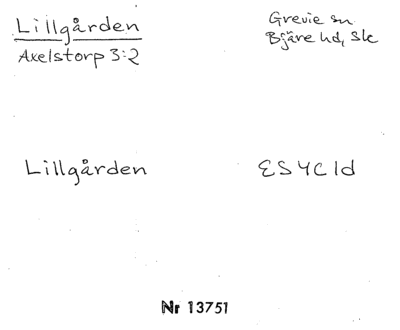 Lillgården
Axelstorp 3:2
Grevie sn
Bjäre hd, Sk
Lillgården
ES4C1d
Nr 13751